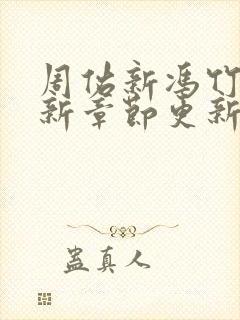 周佑新冯竹
新章节更新
蛊真人